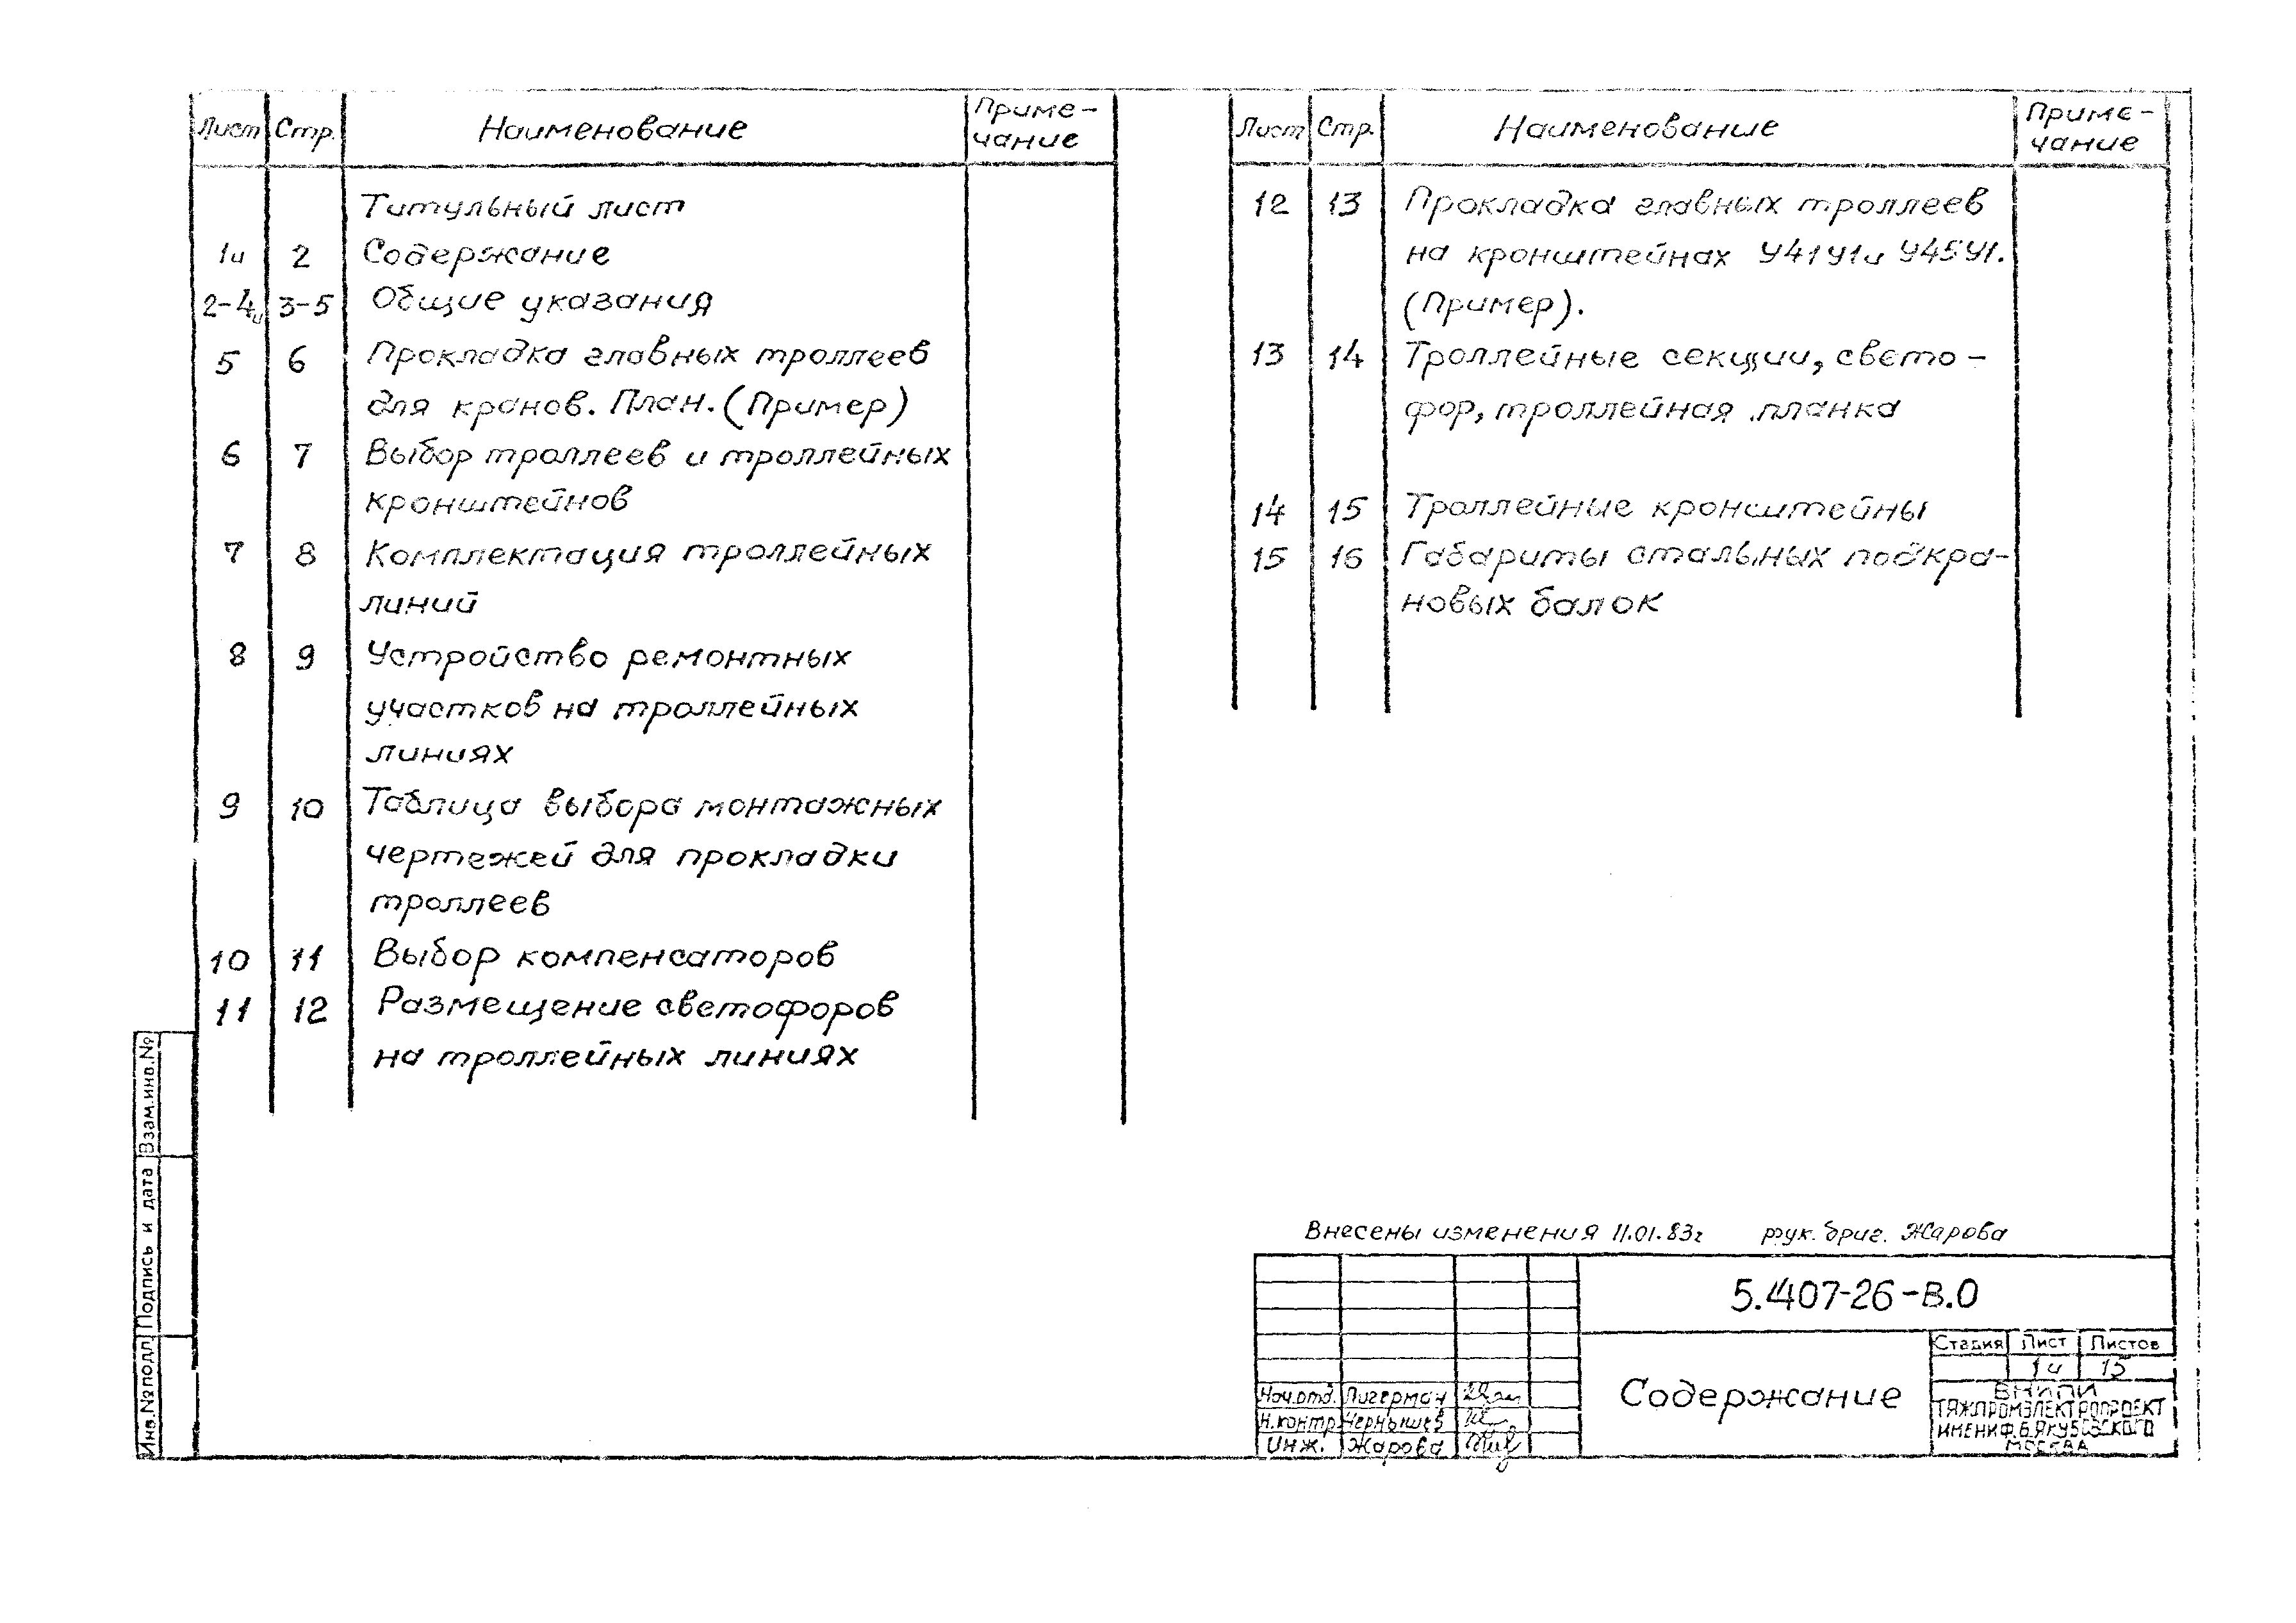 Лист Стр. Наименование Приме-
чание
Титульный лист
1и 2 Содержание
2-4и 3-5 Общие указания
5 6 Прокладка главных троллеев
для кранов. План. (Пример)
6 7 Выбор троллеев и троллейных
кронштейнов
7 8 Комплектация троллейных
линий
8 9 Устройство ремонтных
участков на троллейных
линиях
9 10 Таблица выбора монтажных
чертежей для прокладки
троллеев
10 11 Выбор компенсаторов
11 12 Размещение светофоров
на троллейных линиях
Лист Стр. Наименование Приме-
чание
12 13 Прокладка главных троллеев
на кронштейнах У41У1и У45У1.
(Пример).
13 14 Троллейные секции, свето-
фор, троллейная планка
14 15 Троллейные кронштейны
15 16 Габариты стальных подкра-
новых балок
Взам.инв.№
Подпись и дата
Инв.№подл.
Внесены изменения 11.01.83г рук. бриг. Жарова
5.407-26-В.0
Содержание
Стадия Лист Листов
1и 15
Нач.отд. Лигерман
Н.контр. Чернышев
Инж. Жарова
ВНИПИ
ТЯЖПРОМЭЛЕКТРОПРОЕКТ
ИМЕНИ Ф.Б.ЯКУБОВСКОГО
МОСКВА